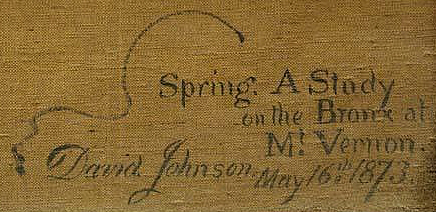 Spring. A Study
on the Bronx at
Mt. Vernon.
David Johnson. May 16th. 1873.